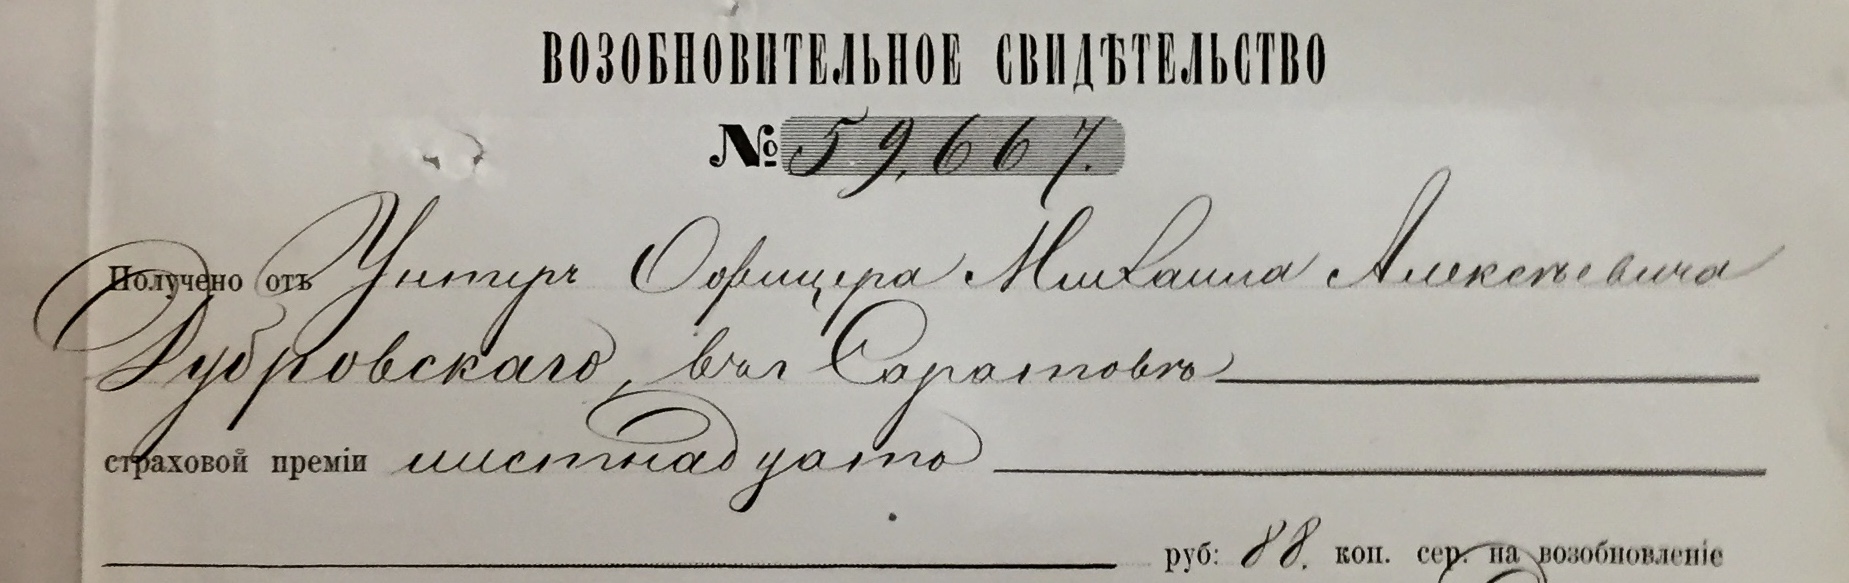 ВОЗОБНОВИТЕЛЬНОЕ СВИДѢТЕЛЬСТВО
№ 59,667.
Получено отъ Унтеръ Офицера Михаила Алексѣевича
Дубровскаго, въ г Саратовѣ
страховой преміи шестнадцать
руб: 88. коп. сер. на возобновленіе